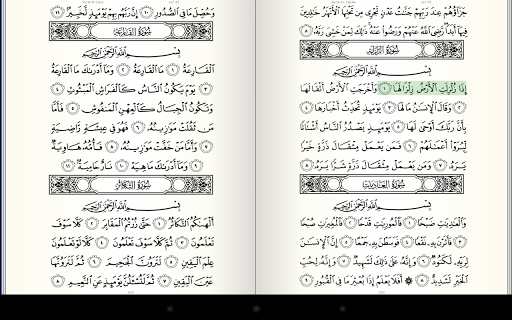 جَزَآؤُهُمْ عِندَ رَبِّهِمْ جَنَّٰتُ عَدْنٍ تَجْرِى مِن تَحْتِهَا ٱلْأَنْهَٰرُ خَٰلِدِينَ
فِيهَآ أَبَدًا رَّضِىَ ٱللَّهُ عَنْهُمْ وَرَضُوا۟ عَنْهُ ذَٰلِكَ لِمَنْ خَشِىَ رَبَّهُۥ ٨
سُورَةُ الزَّلْزَلَةِ
بِسْمِ ٱللَّهِ ٱلرَّحْمَٰنِ ٱلرَّحِيمِ
إِذَا زُلْزِلَتِ ٱلْأَرْضُ زِلْزَالَهَا ١ وَأَخْرَجَتِ ٱلْأَرْضُ أَثْقَالَهَا
٢ وَقَالَ ٱلْإِنسَٰنُ مَا لَهَا ٣ يَوْمَئِذٍ تُحَدِّثُ أَخْبَارَهَا ٤
بِأَنَّ رَبَّكَ أَوْحَىٰ لَهَا ٥ يَوْمَئِذٍ يَصْدُرُ ٱلنَّاسُ أَشْتَاتًا
لِّيُرَوْا۟ أَعْمَٰلَهُمْ ٦ فَمَن يَعْمَلْ مِثْقَالَ ذَرَّةٍ خَيْرًا
يَرَهُۥ ٧ وَمَن يَعْمَلْ مِثْقَالَ ذَرَّةٍ شَرًّا يَرَهُۥ ٨
سُورَةُ العَادِيَاتِ
بِسْمِ ٱللَّهِ ٱلرَّحْمَٰنِ ٱلرَّحِيمِ
وَٱلْعَٰدِيَٰتِ ضَبْحًا ١ فَٱلْمُورِيَٰتِ قَدْحًا ٢ فَٱلْمُغِيرَٰتِ صُبْحًا
٣ فَأَثَرْنَ بِهِۦ نَقْعًا ٤ فَوَسَطْنَ بِهِۦ جَمْعًا ٥ إِنَّ ٱلْإِنسَٰنَ
لِرَبِّهِۦ لَكَنُودٌ ٦ وَإِنَّهُۥ عَلَىٰ ذَٰلِكَ لَشَهِيدٌ ٧ وَإِنَّهُۥ لِحُبِّ
ٱلْخَيْرِ لَشَدِيدٌ ٨ ۞ أَفَلَا يَعْلَمُ إِذَا بُعْثِرَ مَا فِى ٱلْقُبُورِ ٩
وَحُصِّلَ مَا فِى ٱلصُّدُورِ ١٠ إِنَّ رَبَّهُم بِهِمْ يَوْمَئِذٍ لَّخَبِيرٌۢ ١١
سُورَةُ القَارِعَةِ
بِسْمِ ٱللَّهِ ٱلرَّحْمَٰنِ ٱلرَّحِيمِ
ٱلْقَارِعَةُ ١ مَا ٱلْقَارِعَةُ ٢ وَمَآ أَدْرَىٰكَ مَا ٱلْقَارِعَةُ
٣ يَوْمَ يَكُونُ ٱلنَّاسُ كَٱلْفَرَاشِ ٱلْمَبْثُوثِ ٤
وَتَكُونُ ٱلْجِبَالُ كَٱلْعِهْنِ ٱلْمَنفُوشِ ٥ فَأَمَّا
مَن ثَقُلَتْ مَوَٰزِينُهُۥ ٦ فَهُوَ فِى عِيشَةٍ رَّاضِيَةٍ
٧ وَأَمَّا مَنْ خَفَّتْ مَوَٰزِينُهُۥ ٨ فَأُمُّهُۥ هَاوِيَةٌ
٩ وَمَآ أَدْرَىٰكَ مَا هِيَهْ ١٠ نَارٌ حَامِيَةٌۢ ١١
سُورَةُ التَّكَاثُرِ
بِسْمِ ٱللَّهِ ٱلرَّحْمَٰنِ ٱلرَّحِيمِ
أَلْهَىٰكُمُ ٱلتَّكَاثُرُ ١ حَتَّىٰ زُرْتُمُ ٱلْمَقَابِرَ ٢ كَلَّا سَوْفَ
تَعْلَمُونَ ٣ ثُمَّ كَلَّا سَوْفَ تَعْلَمُونَ ٤ كَلَّا لَوْ تَعْلَمُونَ
عِلْمَ ٱلْيَقِينِ ٥ لَتَرَوُنَّ ٱلْجَحِيمَ ٦ ثُمَّ لَتَرَوُنَّهَا
عَيْنَ ٱلْيَقِينِ ٧ ثُمَّ لَتُسْـَٔلُنَّ يَوْمَئِذٍ عَنِ ٱلنَّعِيمِ ٨